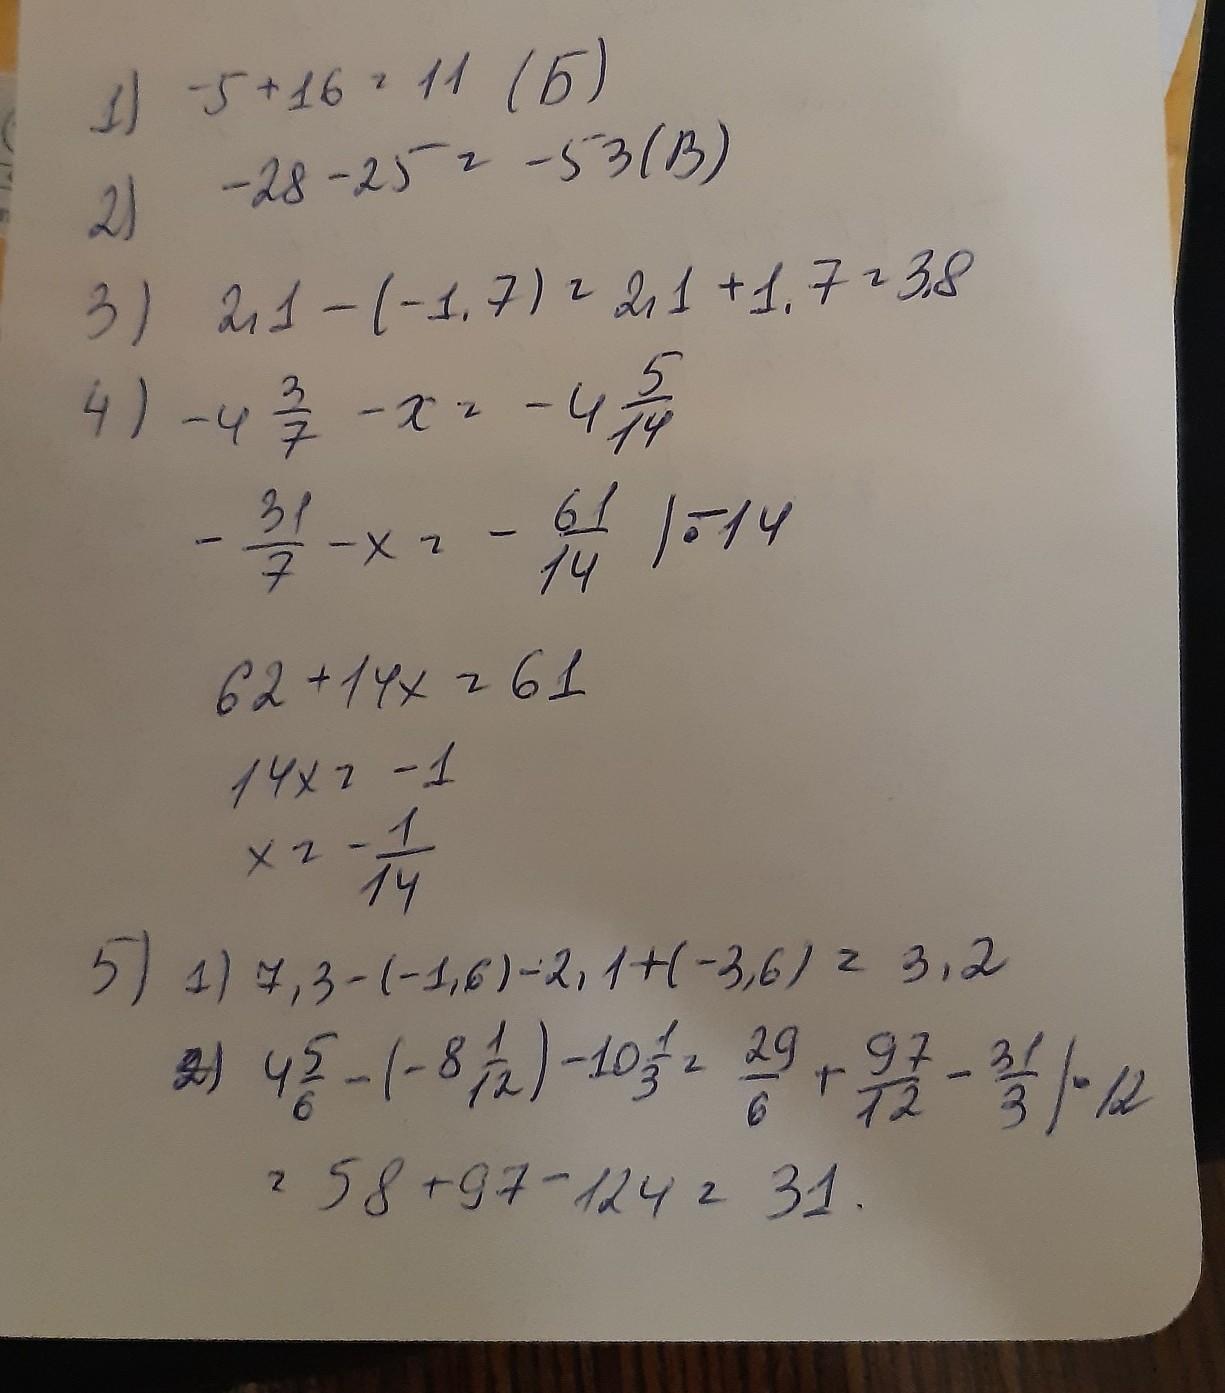 1) -5+16=11 (Б)
2) -28-25= -53(В)
3) 2,1-(-1.7)=2,1+1.7=3.8
4) -4 3/7 -x= -4 5/14
- 31/7 -x= - 61/14 |·-14
62+14x=61
14x= -1
x= - 1/14
5) 1) 7,3-(-1,6)-2,1+(-3,6)= 3,2
2) 4 5/6 -(-8 1/12)-10 1/3= 29/6 + 97/12 - 31/3 |·12
= 58+97-124= 31.